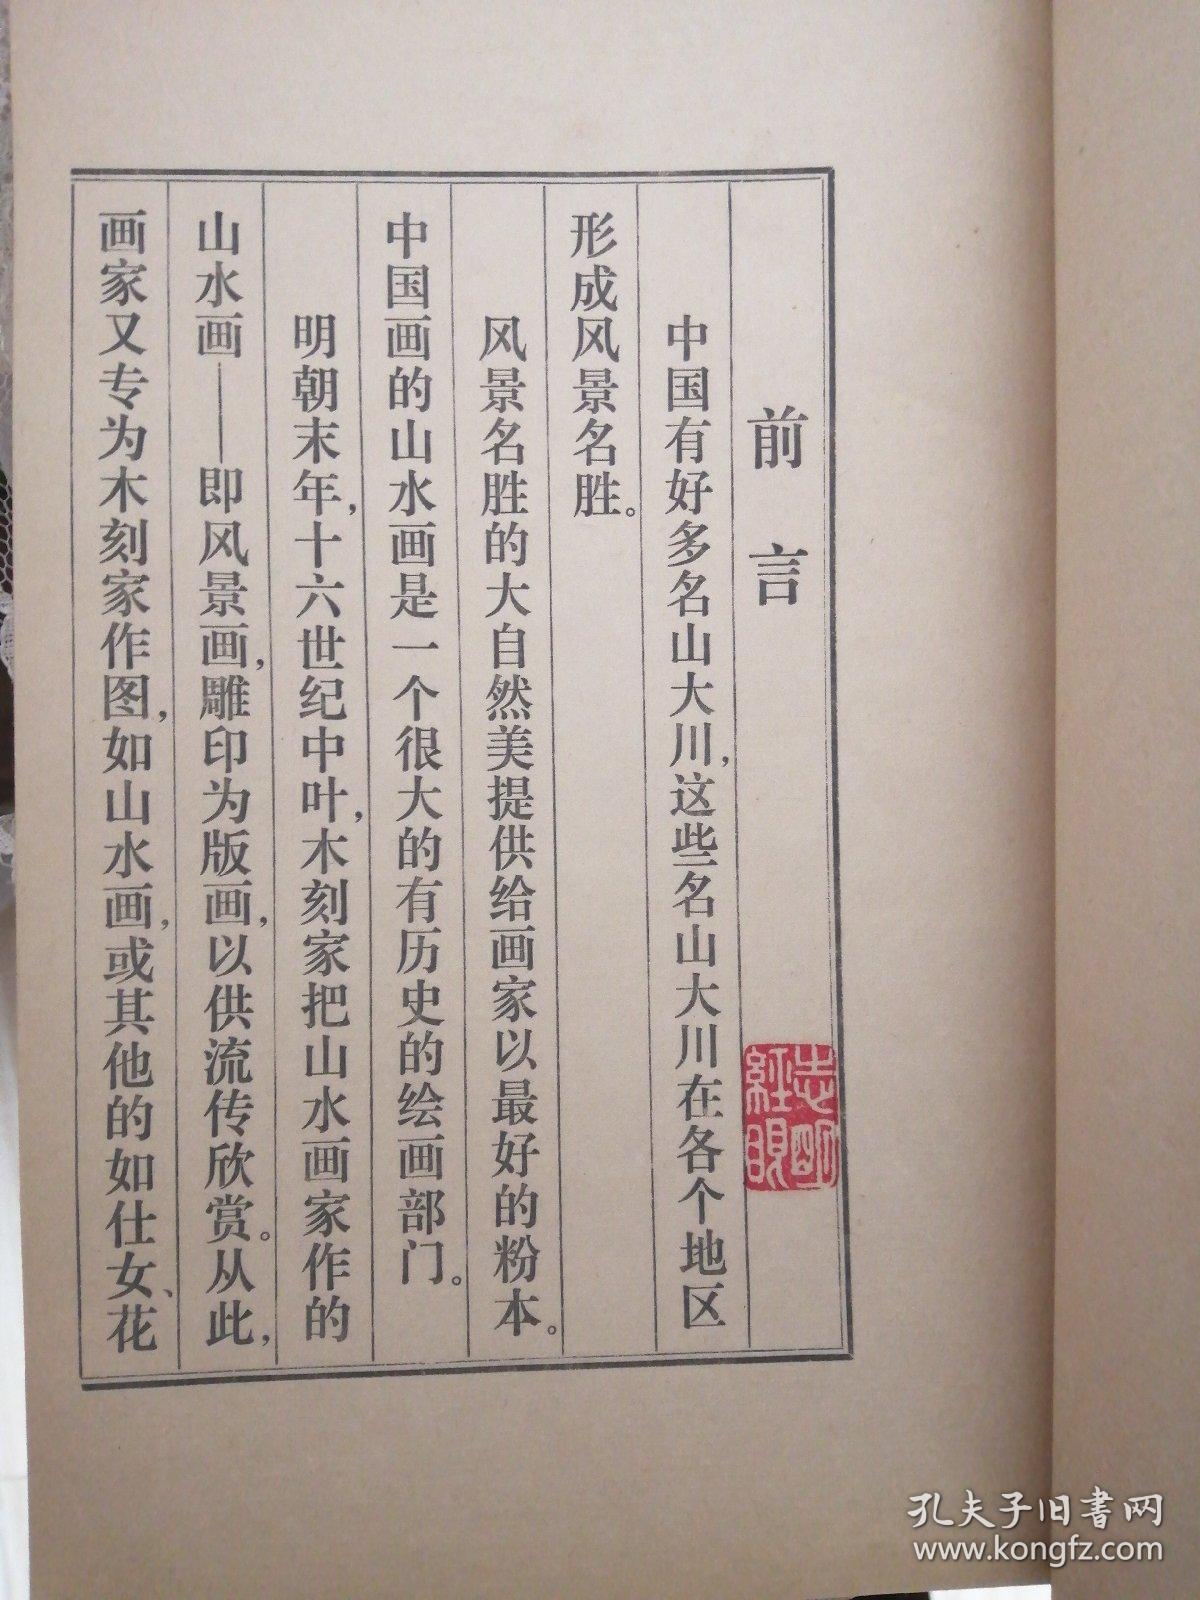 前言
中国有好多名山大川，这些名山大川在各个地区
形成风景名胜。
风景名胜的大自然美提供给画家以最好的粉本。
中国画的山水画是一个很大的有历史的绘画部门。
明朝末年，十六世纪中叶，木刻家把山水画家作的
山水画——即风景画，雕印为版画，以供流传欣赏。从此，
画家又专为木刻家作图，如山水画，或其他的如仕女、花
志明
經眼
孔夫子旧书网
www.kongfz.com